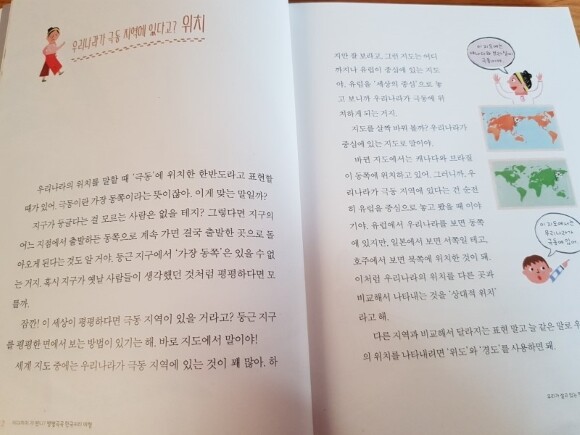 우리나라가 극동 지역에 있다고? 위치
우리나라의 위치를 말할 때 '극동'에 위치한 한반도라고 표현할
때가 있어. 극동이란 가장 동쪽이라는 뜻이잖아. 이게 맞는 말일까?
지구가 둥글다는 걸 모르는 사람은 없을 테지? 그렇다면 지구의
어느 지점에서 출발하든 동쪽으로 계속 가면 결국 출발한 곳으로 돌
아오게 된다는 것도 알 거야. 둥근 지구에서 '가장 동쪽'은 있을 수 없
는 거지. 혹시 지구가 옛날 사람들이 생각했던 것처럼 평평하다면 모
를까.
잠깐! 이 세상이 평평하다면 극동 지역이 있을 거라고? 둥근 지구
를 평평한 면에서 보는 방법이 있기는 해. 바로 지도에서 말이야!
세계 지도 중에는 우리나라가 극동 지역에 있는 것이 꽤 많아. 하
지만 잘 보라고. 그런 지도는 어디
까지나 유럽이 중심에 있는 지도
야. 유럽을 '세상의 중심'으로 놓
고 보니까 우리나라가 극동에 위
치하게 되는 거지.
지도를 살짝 바꿔 볼까? 우리나라가
중심에 있는 지도로 말이야.
바뀐 지도에서는 캐나다와 브라질
이 동쪽에 위치하고 있어. 그러니까, 우
리나라가 극동 지역에 있다는 건 순전
히 유럽을 중심으로 놓고 봤을 때 이야
기야. 유럽에서 우리나라를 보면 동쪽
에 있지만, 일본에서 보면 서쪽일 테고,
호주에서 보면 북쪽에 위치한 것이 돼.
이처럼 우리나라의 위치를 다른 곳과
비교해서 나타내는 것을 '상대적 위치'
라고 해.
다른 지역과 비교해서 달라지는 표현 말고 늘 같은 말로 우
의 위치를 나타내려면 '위도'와 '경도'를 사용하면 돼.
이 지도에선
극동이네.
이 지도에서는
우리나라가
우리가 살고 있는